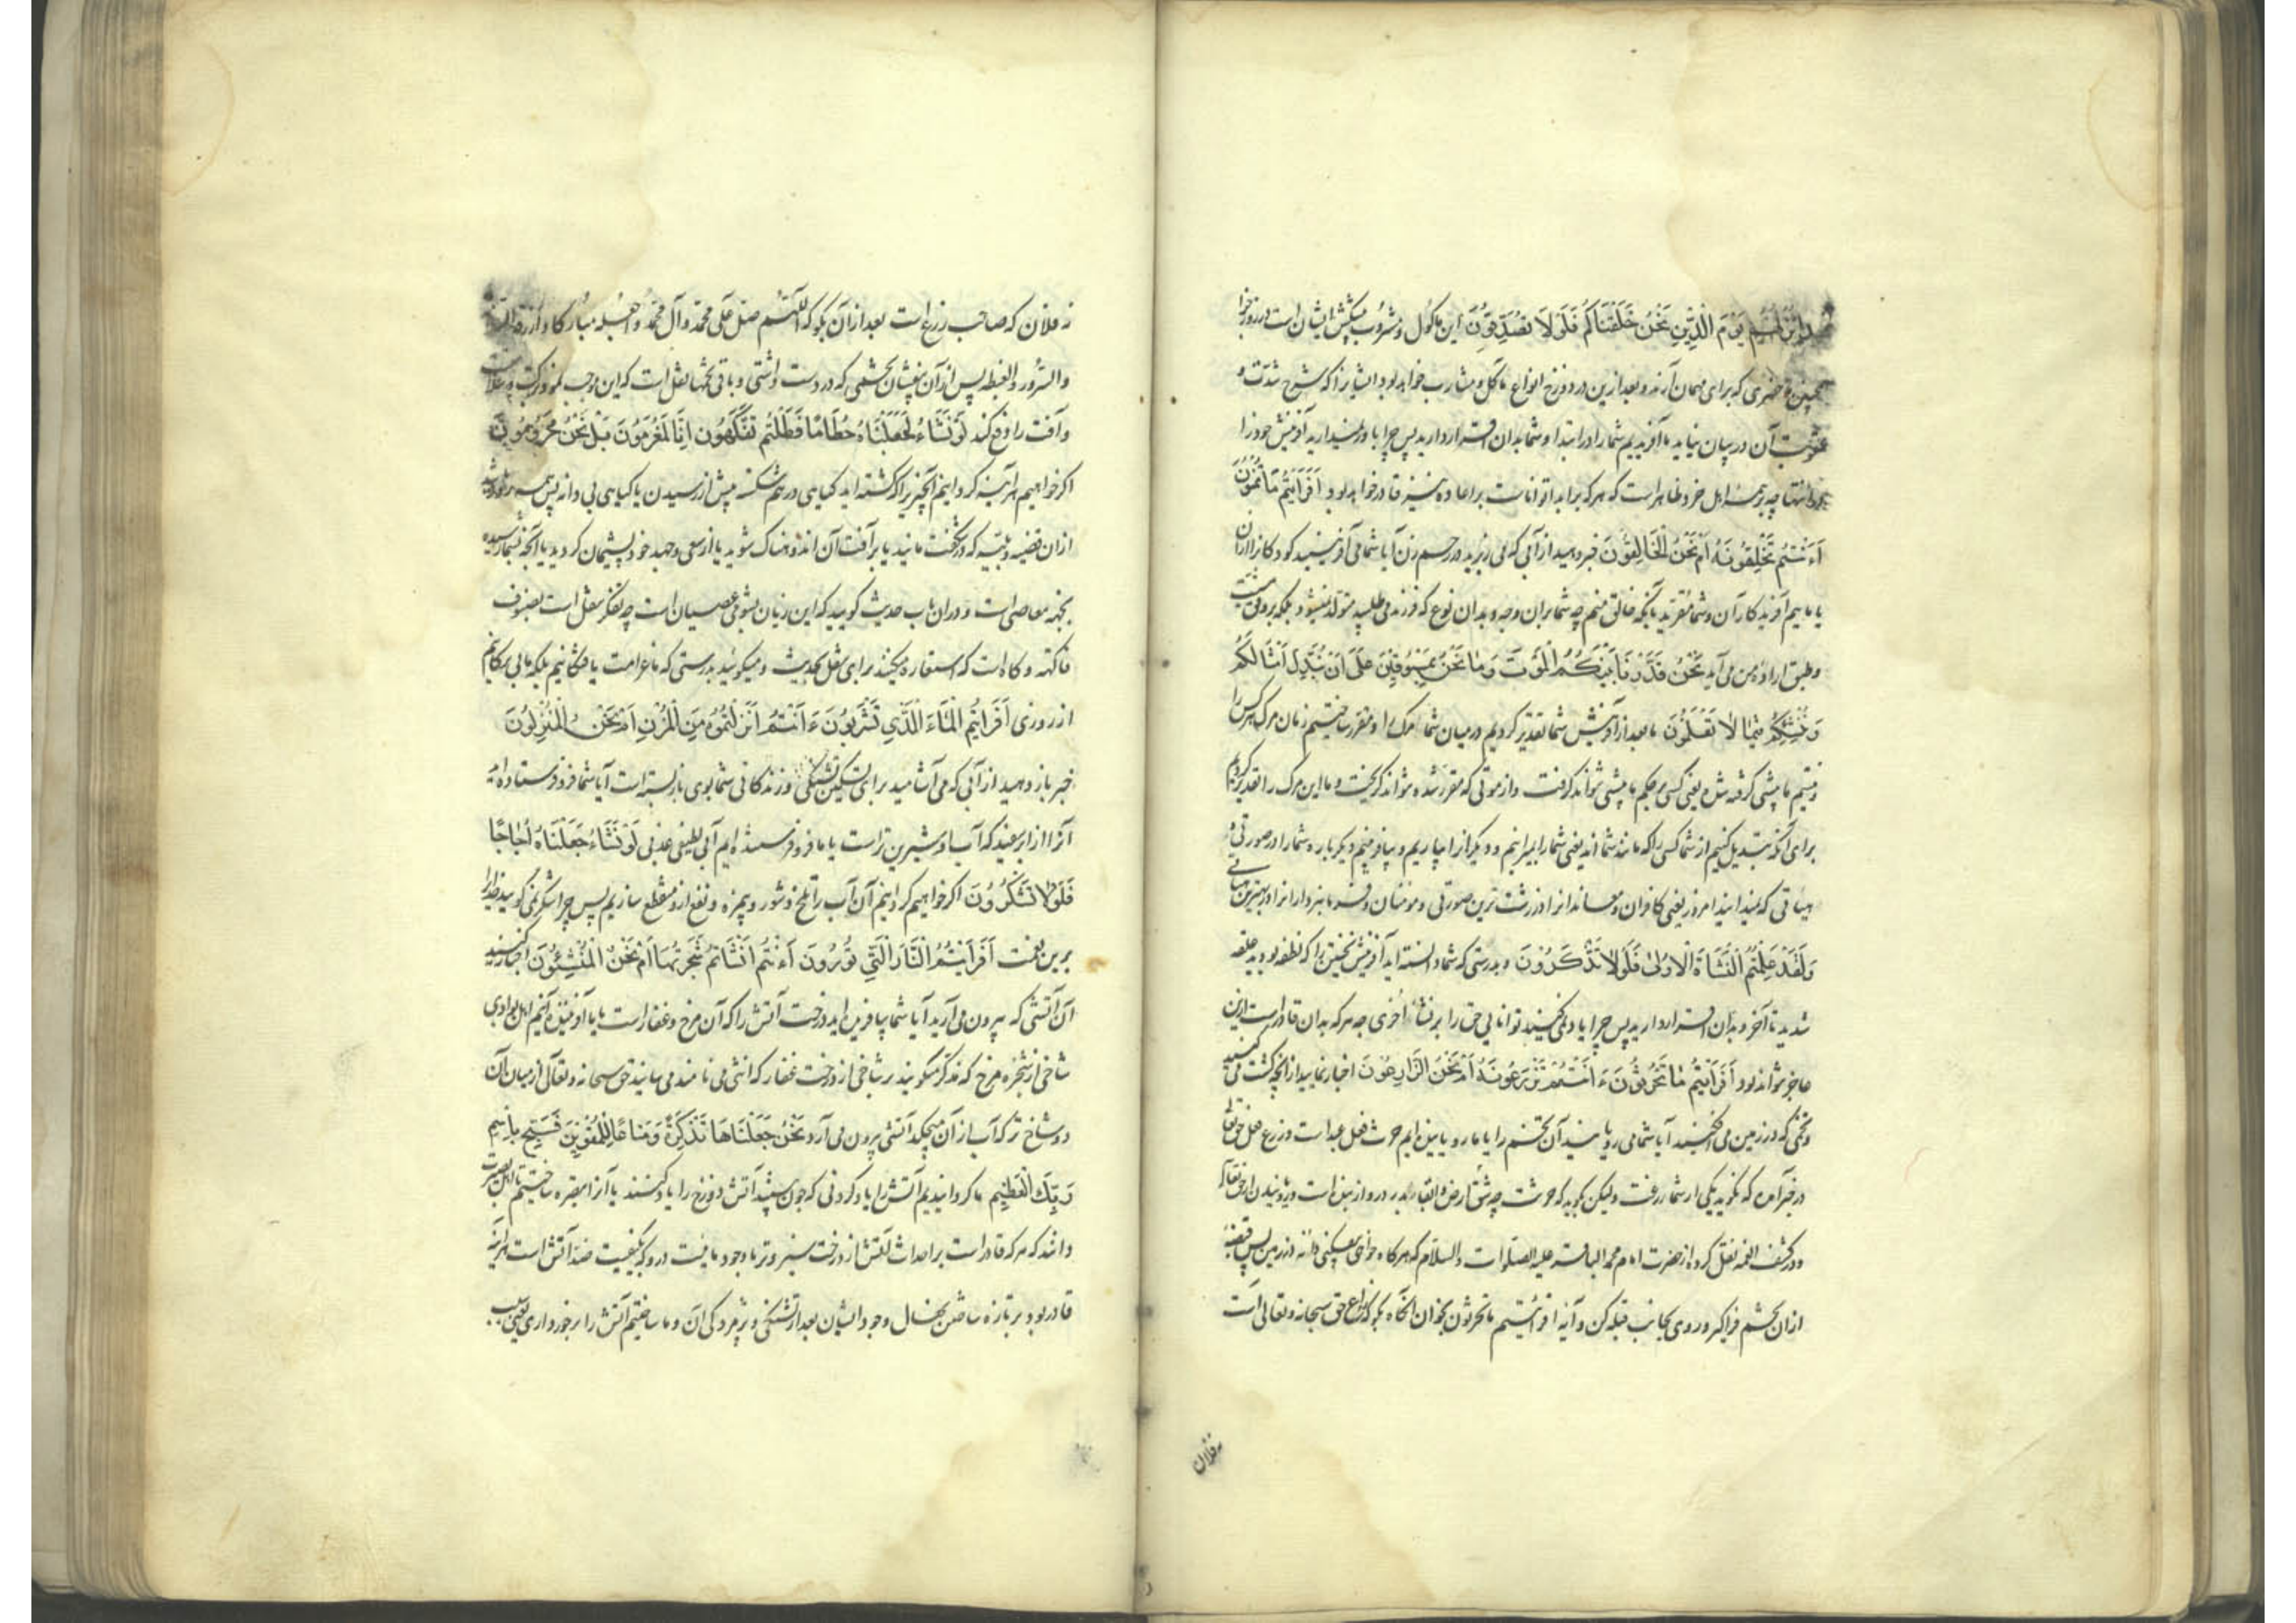 هذا نزلهم يوم الدين نحن خلقناكم فلولا تصدقون این ماکول و مشروب پیشکش ایشان است در روز جزا
همچون ما حضری که برای مهمان آرند و بعد ازین در دوزخ انواع مآکل و مشارب خواهد بود ایشانرا که شرح شدت و
عقوبت آن در بیان نیاید ما آفریدیم شما را در ابتدا و شما بدان اقرار دارید پس چرا باور نمیدارید آفرینش خود را
در انتها چه بر همه اهل خرد ظاهر است که هر که بر ابدا تواناست بر اعاده نیز قادر خواهد بود افرايتم ما تمنون
ءانتم تخلقونه ام نحن الخالقون خبر دهید از آبی که می ریزید در رحم زن آیا شما می آفرینید کودکانرا از آن
یا ماییم آفریدکار آن و شما مقرید بآنکه خالق منم چه شما بران وجه و بدان نوع که فرزند می طلبید متولد نمیشود بلکه بر وفق مشیت
و طبق اراده من می آید نحن قدرنا بينكم الموت وما نحن بمسبوقين على ان نبدل امثالكم
وننشئكم فيما لا تعلمون ما بعد از آفرینش شما تقدیر کردیم در میان شما مرک را و مقرر ساختیم زمان مرک هر کس را
و نیستیم ما پیشی گرفته شده یعنی کسی بر حکم ما پیشی نتواند گرفت و از موتی که مقرر شده نتواند گریخت و ما این مرک را تقدیر کردیم
برای آنکه تبدیل کنیم از شما کسی را که مانند شما اند یعنی شما را بمیرانیم و دیگرانرا بیاریم و بیافرینیم دیگر باره شما را در صورتی و
هیأتی که نمیدانید امروز یعنی کافران و معاندانرا در زشت ترین صورتی و مومنان و فرمانبردارانرا در بهترین هیأتی
ولقد علمتم النشاة الاولى فلولا تذكرون و بدرستی که شما دانسته اید آفرینش نخستین را که نطفه بودید علقه
شدید تا آخر و بدان اقرار دارید پس چرا یاد نمی کنید توانایی حق را بر نشأ اخری چه هر که بدان قادر است ازین
عاجز نتواند بود افرايتم ما تحرثون ءانتم تزرعونه ام نحن الزارعون اخبار نمایید از آنچه کشت می کنید
و تخمی که در زمین می افکنید آیا شما می رویانید آن تخم را یا ما رویاننده ایم حرث فعل عبد است و زرع فعل حق تعالی
در خبر آمده که نگوید یکی از شما زرعت ولیکن بگوید که حرثت چه شق ارض و القا بذر در و از بنده است و رویانیدن از حق تعالی
و در کشف الغمه نقل کرده از حضرت امام محمد الباقر علیه الصلوات والسلام که هر گاه خواهی بیفکنی دانه در زمین پس قبضه
از ان تخم فراگیر و روی بجانب قبله کن و آیه افرايتم ما تحرثون بخوان آنگاه بگو که زارع حق سبحانه و تعالی است
نه فلان
نه فلان که صاحب زرع است بعد از آن بگو که اللهم صل على محمد وآل محمد واجعله مباركا وارزقنا
والسرور والغبطه پس از آن بیفشان تخمی که در دست داشتی و باقی تخمها نقل است که این موجب نمو و برکت و سلامت
و آفت را دفع کند لو نشاء لجعلناه حطاما فظلتم تفكهون انا لمغرمون بل نحن محرومون
اگر خواهیم هر آینه گردانیم آنچیز را که کشته اید گیاهی در هم شکسته پیش از رسیدن یا گیاهی بی دانه پس همه روزه
ازان قضیه و بلیه که در شگفت مانید یا بر آفت آن اندوهناک شوید یا از سعی و جهد خود پشیمان گردید یا آنچه بشما رسیده
بجهة معاصی است و در ان باب حدیث گویید که این زیان بشومی عصیان است چه تفکه نقل است بصنوف
فاکهه و کاه است که استعاره میکنند برای نقل بحدیث و میگویید بدرستی که ما غرامت یافتگانیم بلکه ما بی بهرگانیم
از روزی افرايتم الماء الذي تشربون ءانتم انزلتموه من المزن ام نحن المنزلون
خبر باز دهید از آبی که می آشامید برای تسکین تشنگی و زندگانی شما بوی باز بسته است آیا شما فرو فرستاده اید
آنرا از ابر سفید که آب او شیرین تر است یا ما فرو فرستنده ایم آبی لطیف عذبی لو نشاء جعلناه اجاجا
فلولا تشكرون اگر خواهیم گردانیم آن آب را تلخ و شور و بیمزه و نفع ازو منقطع سازیم پس چرا شکر نمی گویید خدایرا
برین نعمت افرايتم النار التي تورون ءانتم انشاتم شجرتها ام نحن المنشئون اخبار کنید
آن آتشی که بیرون می آرید آیا شما بیافریده اید درخت آتش را که آن مرخ و عفار است یا ما آفریننده آنیم اهل بوادی
شاخی از شجره مرخ که مذکر میگویند بر شاخی از درخت عفار که انثی می نامند می سایند حق سبحانه و تعالی از میان آن
دو شاخ تر که آب از آن میچکد آتشی بیرون می آرد نحن جعلناها تذكرة ومتاعا للمقوين فسبح باسم
ربك العظيم ما گردانیدیم آتش را یاد کردنی که چون بینند آتش دوزخ را یاد کنند یا آنرا تبصره ساختیم تا اهل بصیرت
دانند که هر که قادر است بر احداث آتش از درخت سبز و تر با وجود مائیت در و که بکیفیت ضد آتش است هر آینه
قادر بود بر تازه ساختن نهال وجود ایشان بعد از خشکی و پژمردگی آن و ما ساختیم آتش را برخورداری یعنی سبب